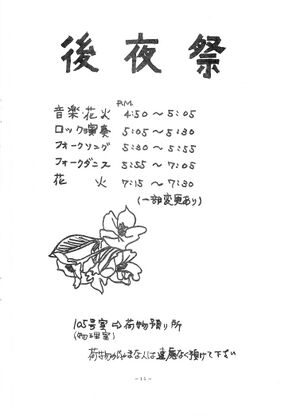 後夜祭
P.M.
音楽・花火 4:50～5:05
ロック演奏 5:05～5:30
フォークソング 5:30～5:55
フォークダンス 5:55～7:05
花火 7:15～7:30
(一部変更あり)
105号室⇨荷物預り所
(物理室)
荷物がじゃまな人は遠慮なく預けて下さい